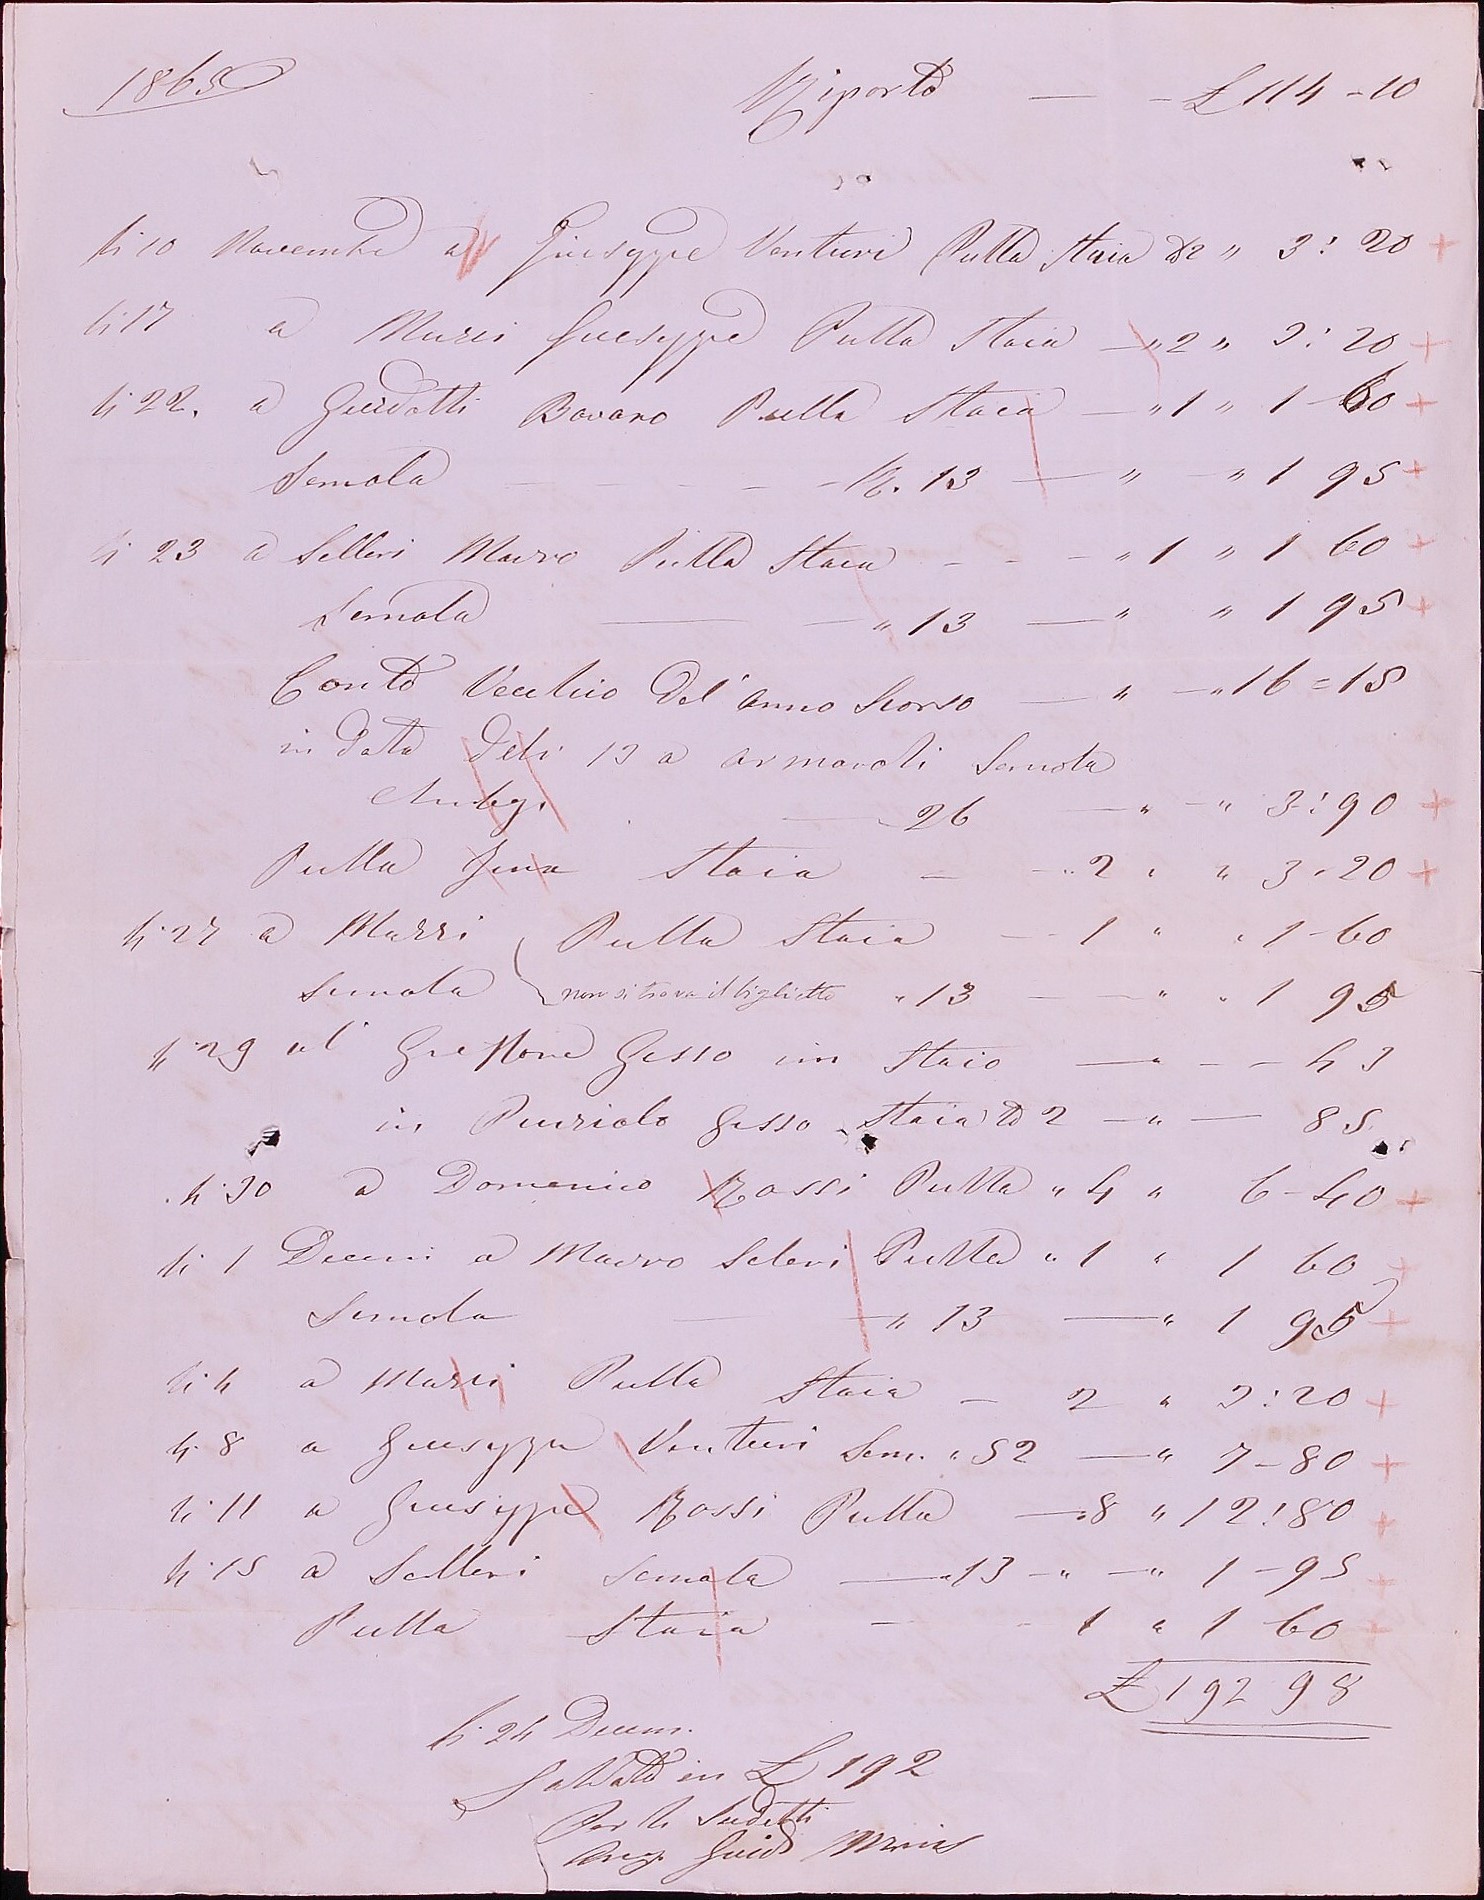 1865 Riporto — - £ 114 - 10
li 10 Novembre a Giuseppe Venturi Pulla Staia d 2 " 3: 20 +
li 17 a Murri Giuseppe Pulla Staia — " 2 " 3: 20 +
li 22. a Guidotti Bovaro Pulla Staia — " 1 " 1 60 +
Semola - - - - - lb. 13 — " - " 1 95 +
li 23 a Selleri Mauro Pulla Staia - - - " 1 " 1 60 +
Semola — - " 13 — " " 1 95 +
Conto Vechio Del' anno Scorso — " - " 16 = 15
in data Deli 13 a armaroli Semola
— 26 — " - " 3: 90 +
Pulla Staia - - " 2 " " 3 - 20 +
li 27 a Murri Pulla Staia - - 1 " " 1 - 60
Semola non si trova il biglietto " 13 - - " " 1 95
li 29 al Gesso in Staio — " - - 43
in Gesso Staia d 2 — " — 85
li 30 a Domenico Rossi Pulla " 4 " 6 - 40 +
li 1 Decem a Mauro Seleri Pulla " 1 " 1 60 +
Semola — - " 13 — " 1 95 +
li 4 a Murri Pulla Staia - 2 " 3: 20 +
li 8 a Giuseppe Venturi Sem. " 52 — " 7 - 80 +
li 11 a Giuseppe Rossi Pulla — 8 " 12: 80 +
li 15 a Selleri Semola — " 13 - " - " 1 - 95 +
Pulla Staia - - 1 " 1 60 +
£ 192 98
li 24 Decem.
Saldato in £ 192
Per li Sudetti
Guido